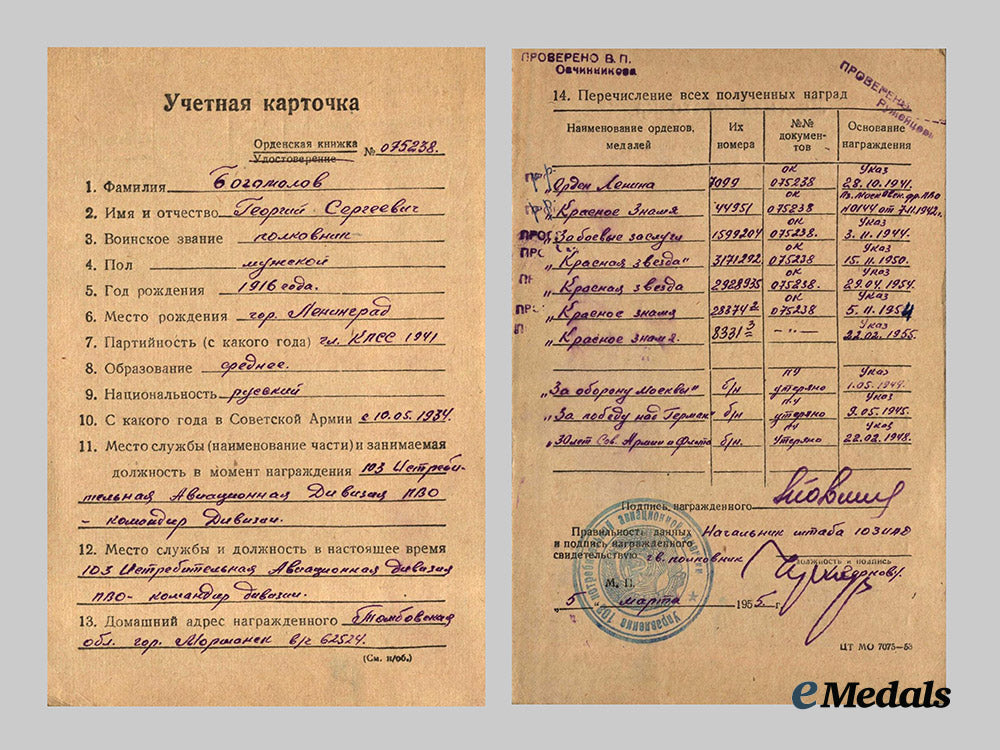 Учетная карточка
Орденская книжка
Удостоверение № 075238.
1. Фамилия Богомолов
2. Имя и отчество Георгий Сергеевич
3. Воинское звание полковник
4. Пол мужской
5. Год рождения 1916 года.
6. Место рождения гор. Ленинград
7. Партийность (с какого года) чл. КПСС 1941
8. Образование среднее.
9. Национальность русский
10. С какого года в Советской Армии с 10.05.1934.
11. Место службы (наименование части) и занимаемая
должность в момент награждения 103 Истреби-
тельная Авиационная Дивизия ПВО
- командир Дивизии.
12. Место службы и должность в настоящее время
103 Истребительная Авиационная дивизия
ПВО - командир дивизии.
13. Домашний адрес награжденного Тамбовская
обл. гор. Моршанск в/ч 62524.
(См. н/об.)
ПРОВЕРЕНО В. П.
Овчинникова
ПРОВЕРЕНО
14. Перечисление всех полученных наград
Наименование орденов, медалей | Их номера | №№ документов | Основание награждения
Орден Ленина 7099 ОК 075238 Указ 28.10.1941.
"Красное Знамя 44951 ОК 075238 №0144 от 7.11.1942г.
"За боевые заслуги 1599204 ОК 075238. Указ 3.11.1944.
"Красная звезда" 3171292 ОК 075238 Указ 15.11.1950.
"Красная звезда 2928935 ОК 075238. Указ 29.04.1954.
"Красное знамя 283742 ОК 075238 Указ 5.11.1954
"Красное знамя. 8331 3 -"- Указ 22.02.1955.
"За оборону Москвы" б/н ПУ утеряно Указ 1.05.1944.
"За победу над Герман" б/н ПУ утеряно Указ 9.05.1945.
"30 лет Сов. Армии и Флота б/н. ПУ Утеряно Указ 22.02.1948.
Подпись награжденного
Правильность данных
и подпись награжденного
свидетельствую
Начальник штаба 103 ИАД
гв. полковник
должность и подпись
М. П.
"5" марта 1955 г.
ЦТ МО 7075—53
eMedals